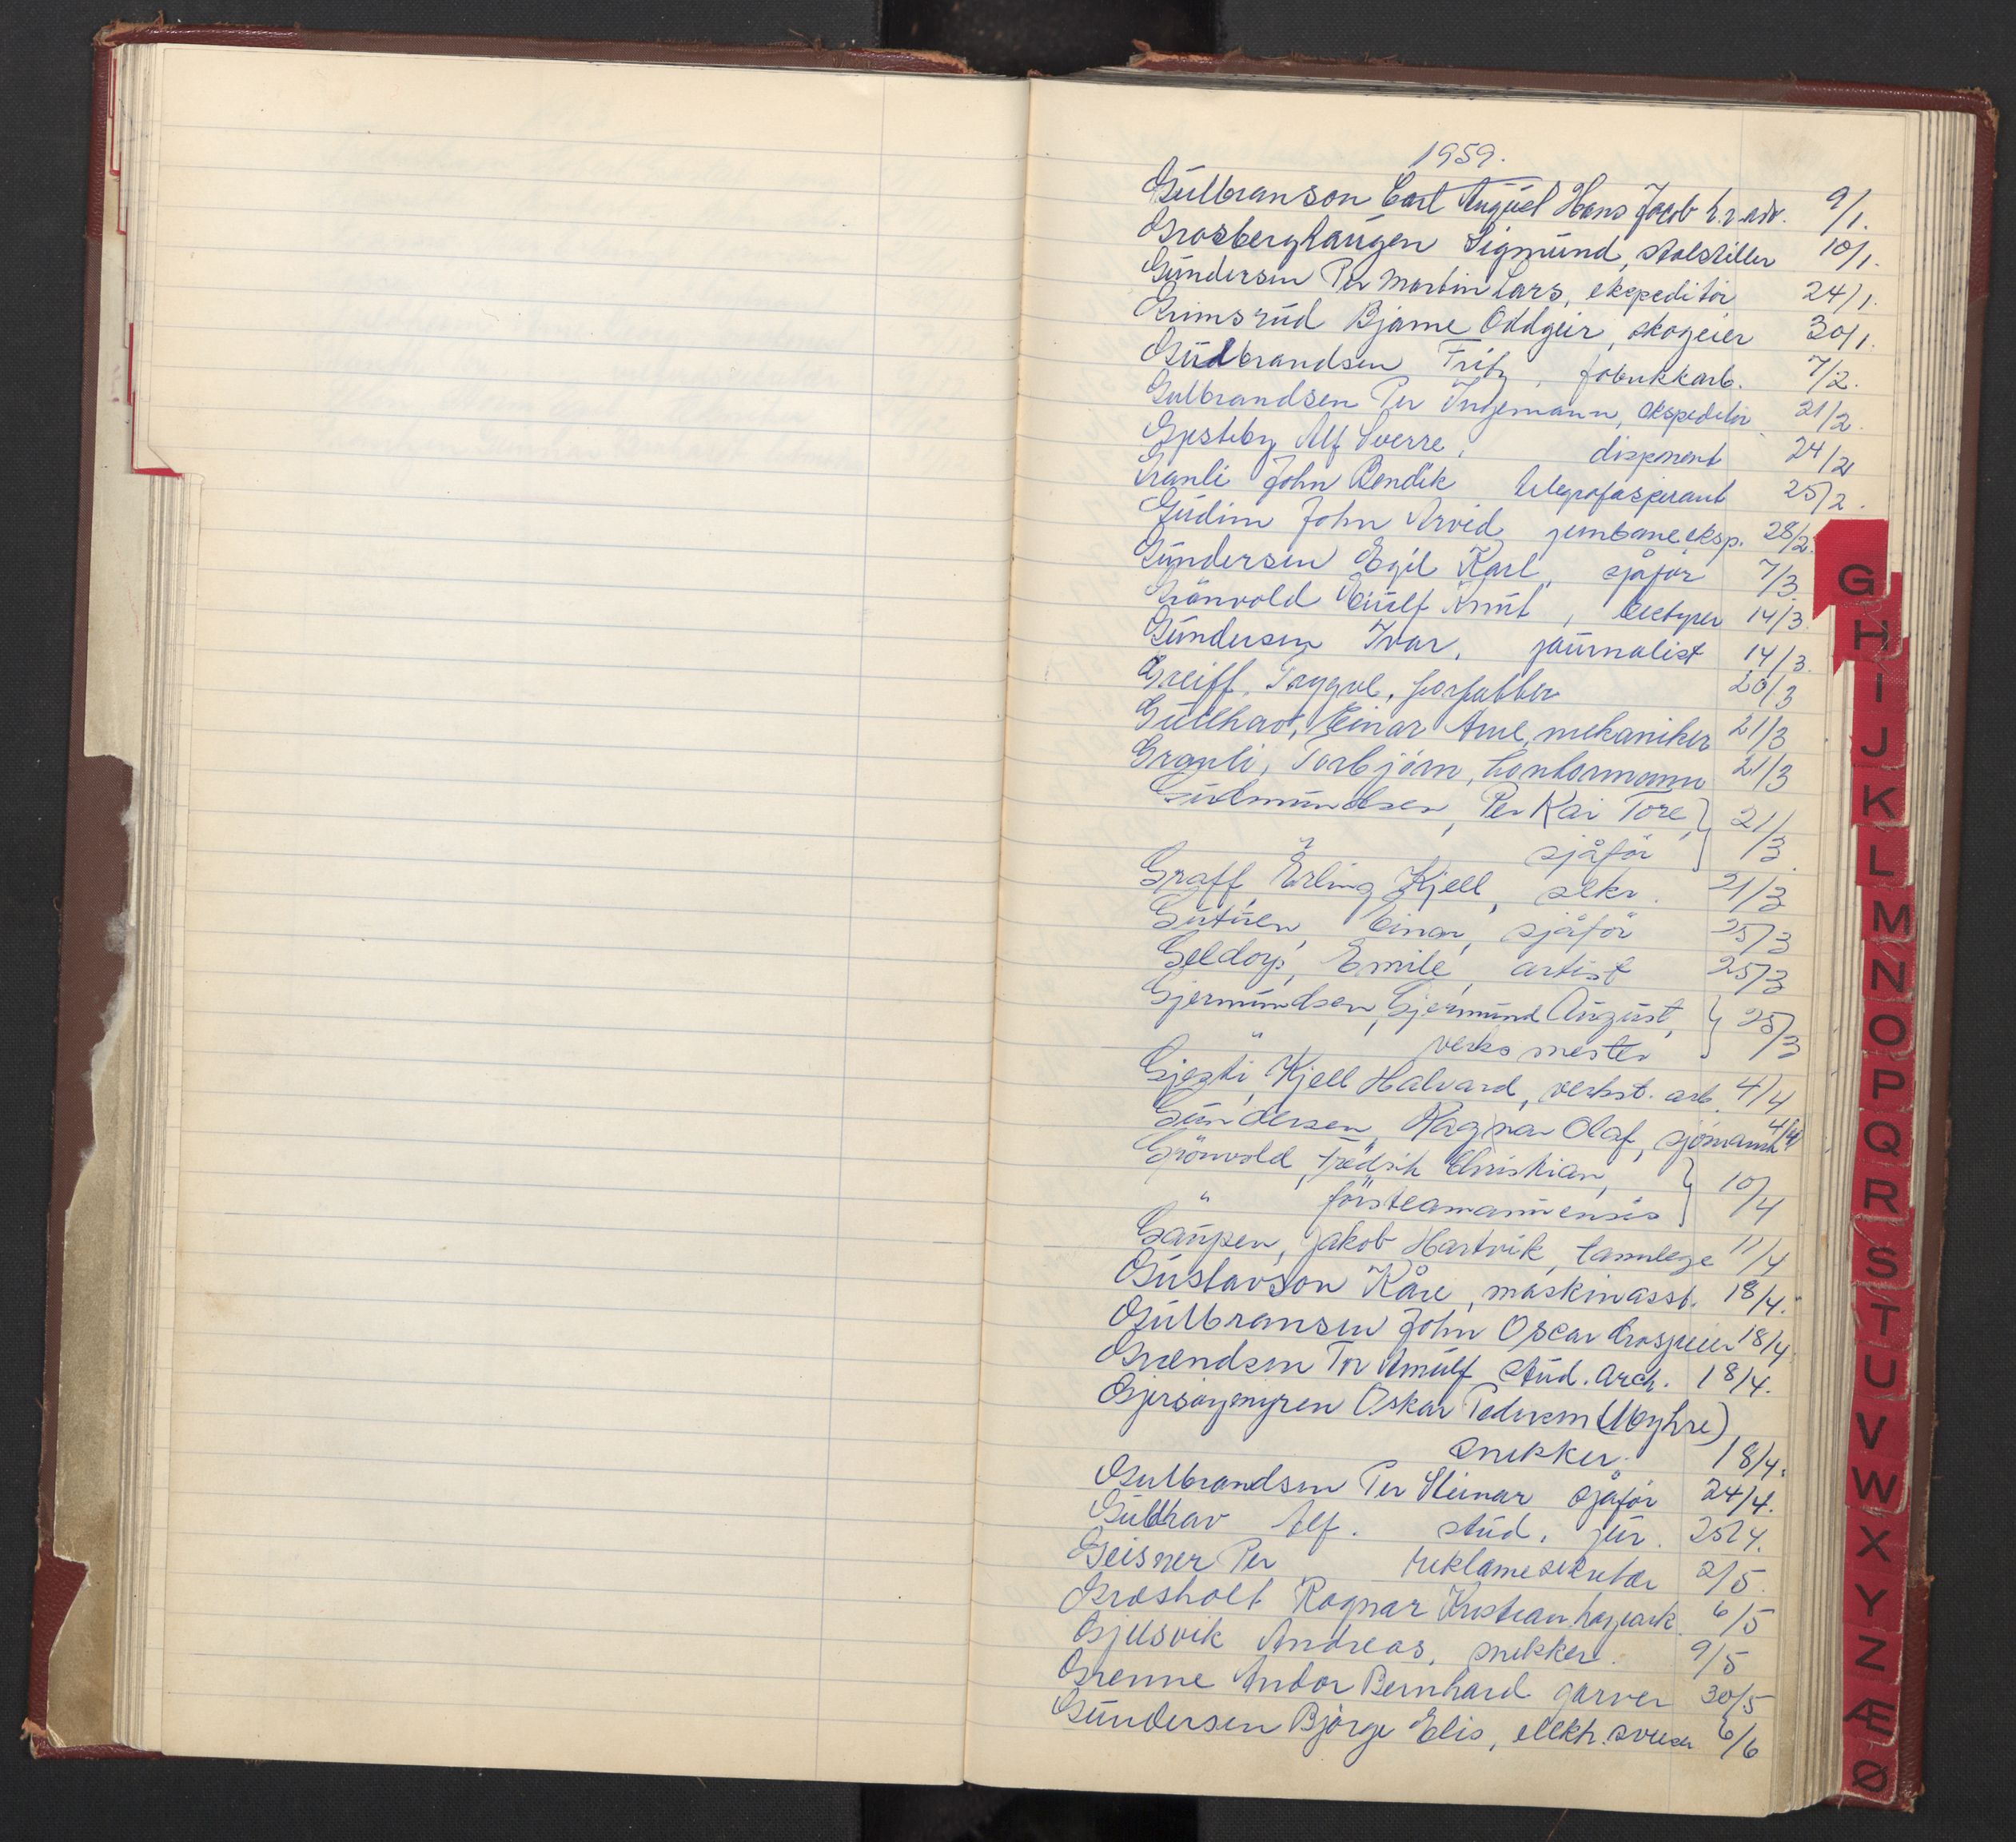 1959.
Gulbranson Carl August Hans Jacob h.r.adv. 9/1.
Grosberghaugen Sigmund, stolstiller 10/1.
Gundersen Per Martin Lars, ekspeditör 24/1.
Grimsrud Bjarne Oddgeir, skogeier 30/1.
Gulbrandsen Fritz, fabrikkarb. 7/2.
Gulbrandsen Per Ingemann, ekspeditör 21/2.
Gjesteby Alf Sverre, disponent 24/2
Granli John Bendik telegrafaspirant 25/2.
Gudim John Arvid jernbaneeksp. 28/2.
Gundersen Egil Karl, sjåför 7/3.
Grönvold Eiulf Knut, 14/3.
Gundersen Ivar, journalist 14/3.
Greiff, Trygve, forfatter 20/3
Gullhav, Einar Arne, mekaniker 21/3
Granli, Torbjörn, kontormann 21/3
Gudmundsen, Per Kai Tore, } 21/3.
" sjåför
Graff, Erling Kjell, sekr. 21/3
Gutuen, Einar, sjåför 25/3
Geldorp, Emile, artist 25/3
Gjermundsen, Gjermund August, } 25/3
" verksmester
Gjesti, Kjell Halvard, verkst. arb. 4/4
Gundersen, Ragnar Olaf, sjömann 4/4
Grönvold, Fredrik Christian, } 10/4
" försteamanuensis
Gaupen, Jakob Hartvik, tannlege 11/4
Gustavson Kåre, maskinasst. 18/4.
Gulbransen John Oscar drosjeeier 18/4
Grændsen Tor Arnulf stud. arch. 18/4.
Gjersöymyren Oskar Pedersen (Myhre),
snekker. 18/4.
Gulbrandsen Per Steinar sjåför 24/4.
Gullhav Alf. stud. jur. 25/4.
Geisner Per reklamesekretær 2/5.
Grosholt Ragnar Kristian 6/5
Gjelsvik Andreas, snekker. 9/5
Grenne Andor Bernhard garver 30/5
Gundersen Björge Elis, elektr. svein 6/6
G
H
I
J
K
L
M
N
O
P
Q
R
S
T
U
V
W
X
Y
Z
Æ
Ø